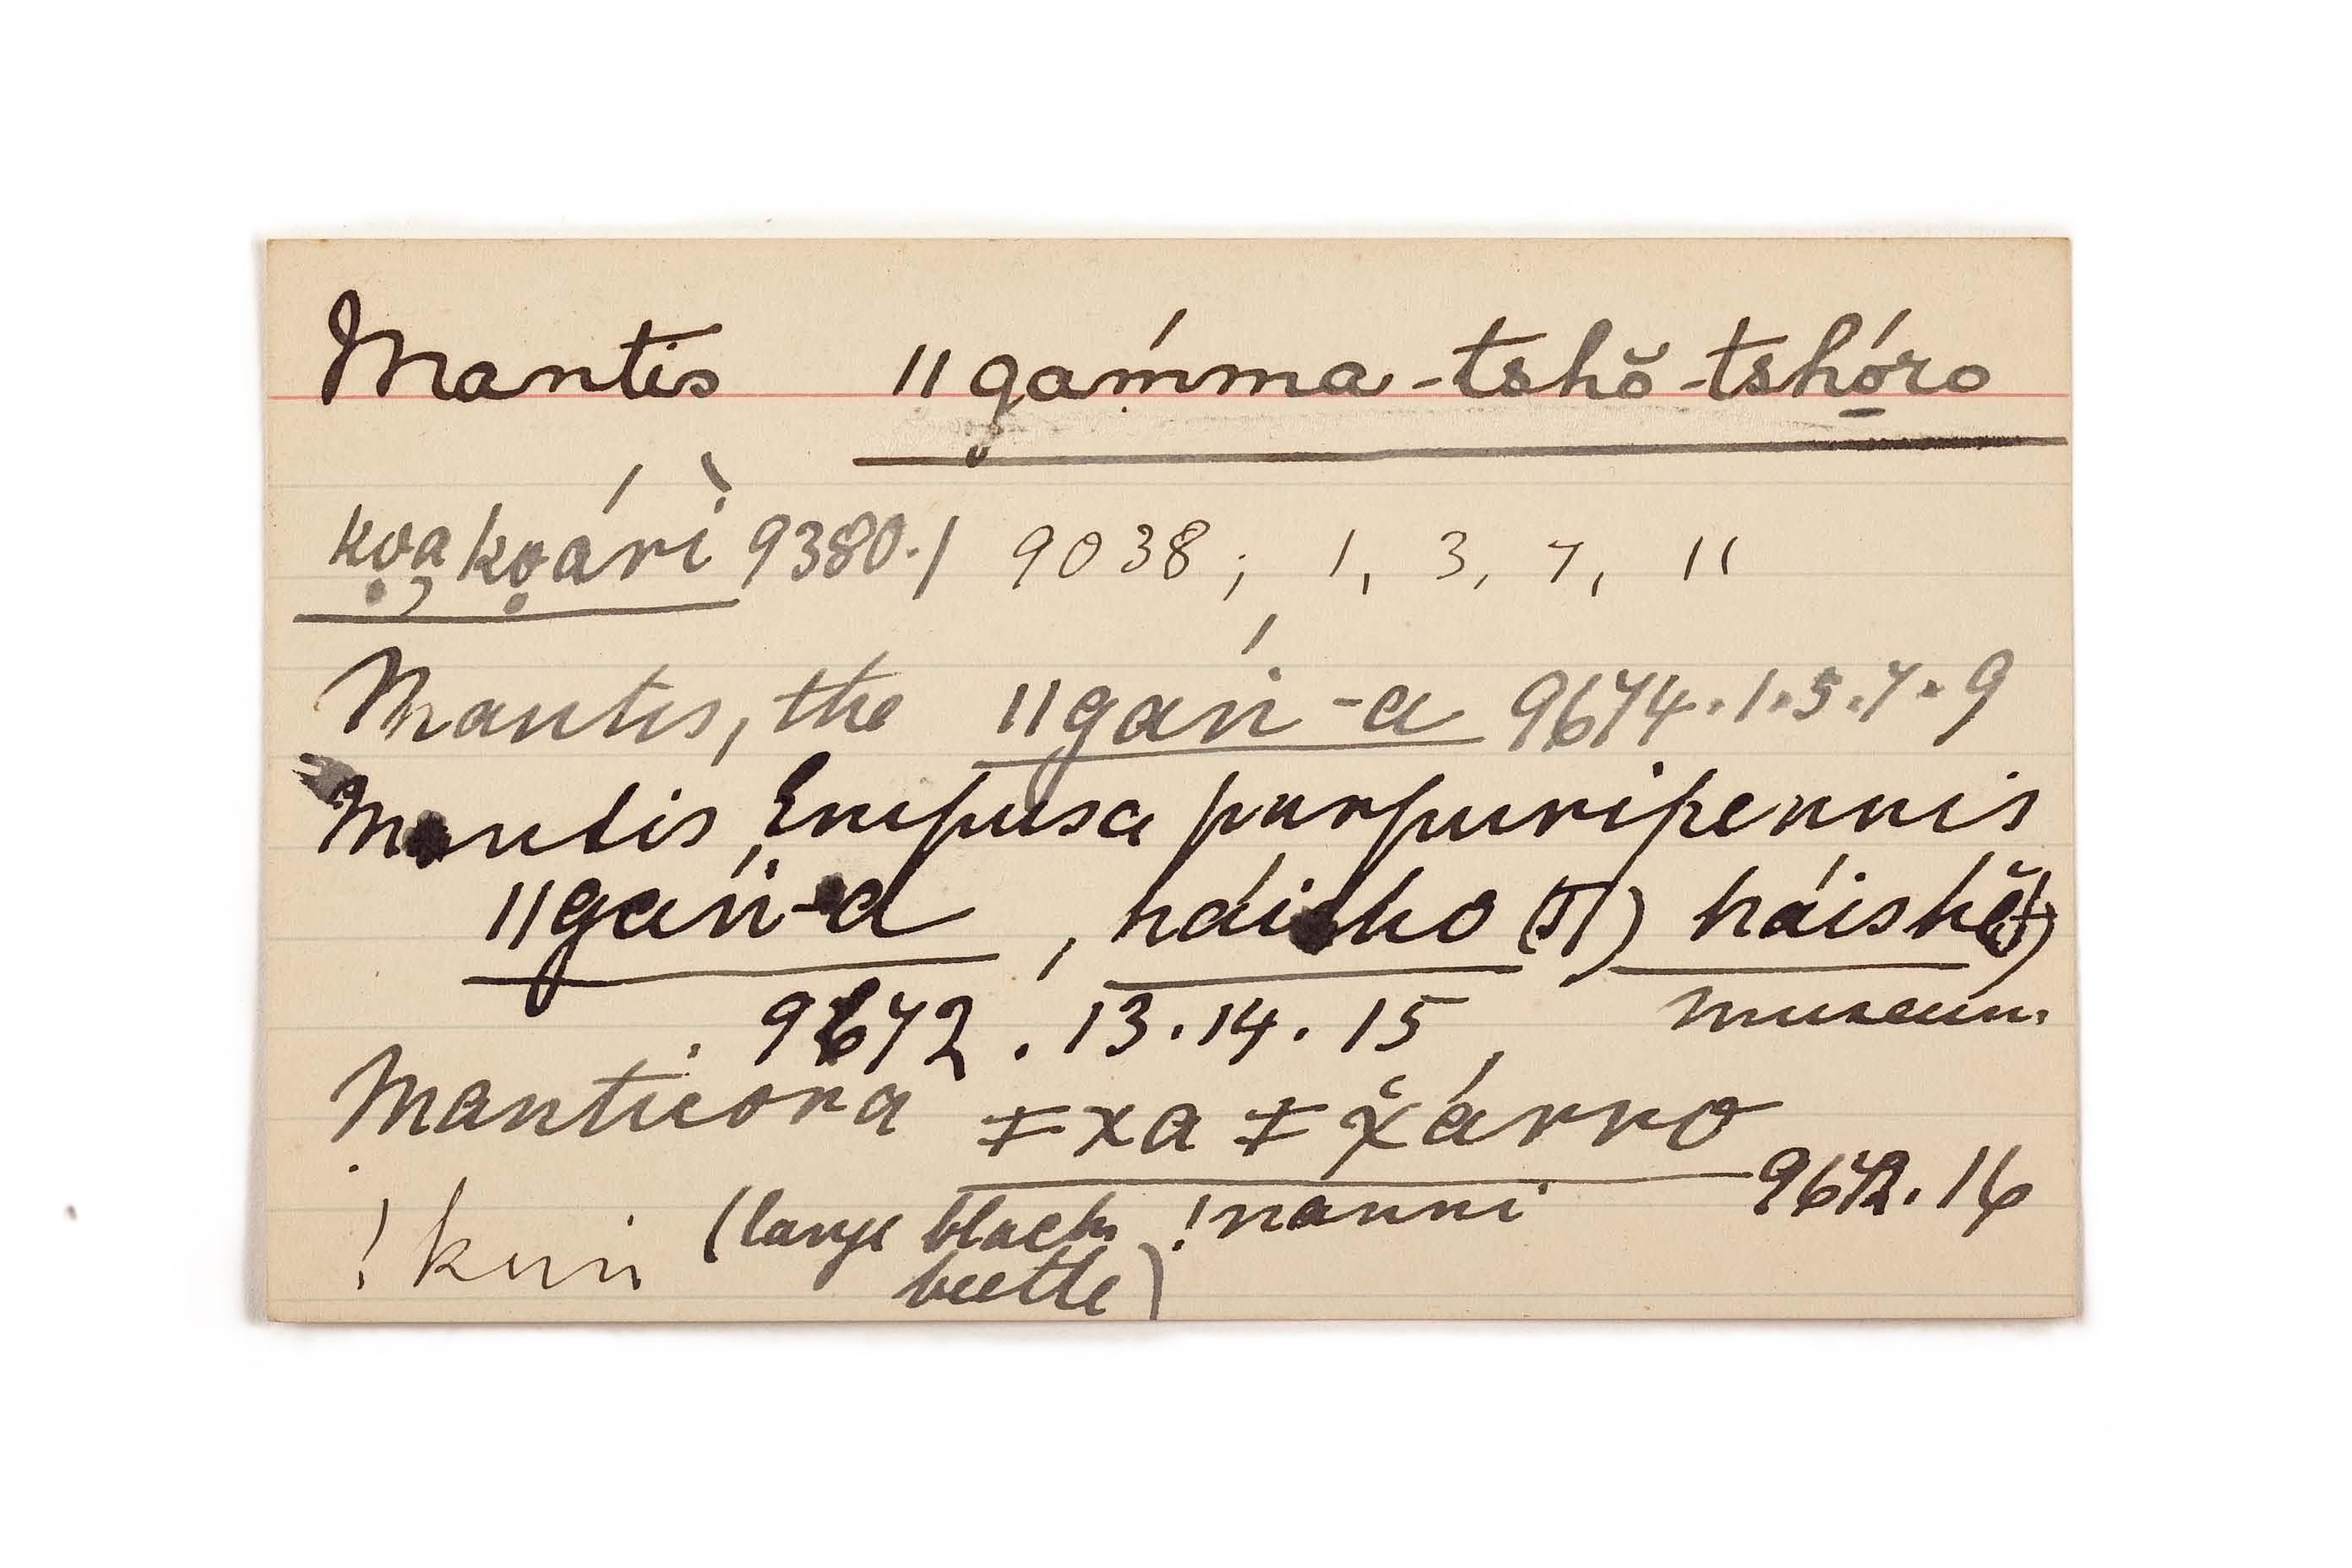 Mantis ǁgaḿma-tshŏ-tshó̱ro
kọa̦kọárì 9380.1 9038; 1, 3, 7, 11
Mantis, the ǁgań-a 9674.1.5.7.9
Mantis, Empusa purpuripennis
ǁgań-a, háisho (Pl) háishĕ
9672.13.14.15 museum.
Manticora ǂxaǂx̆árro
9672.16
!kuii (large black !nanni
beetle)